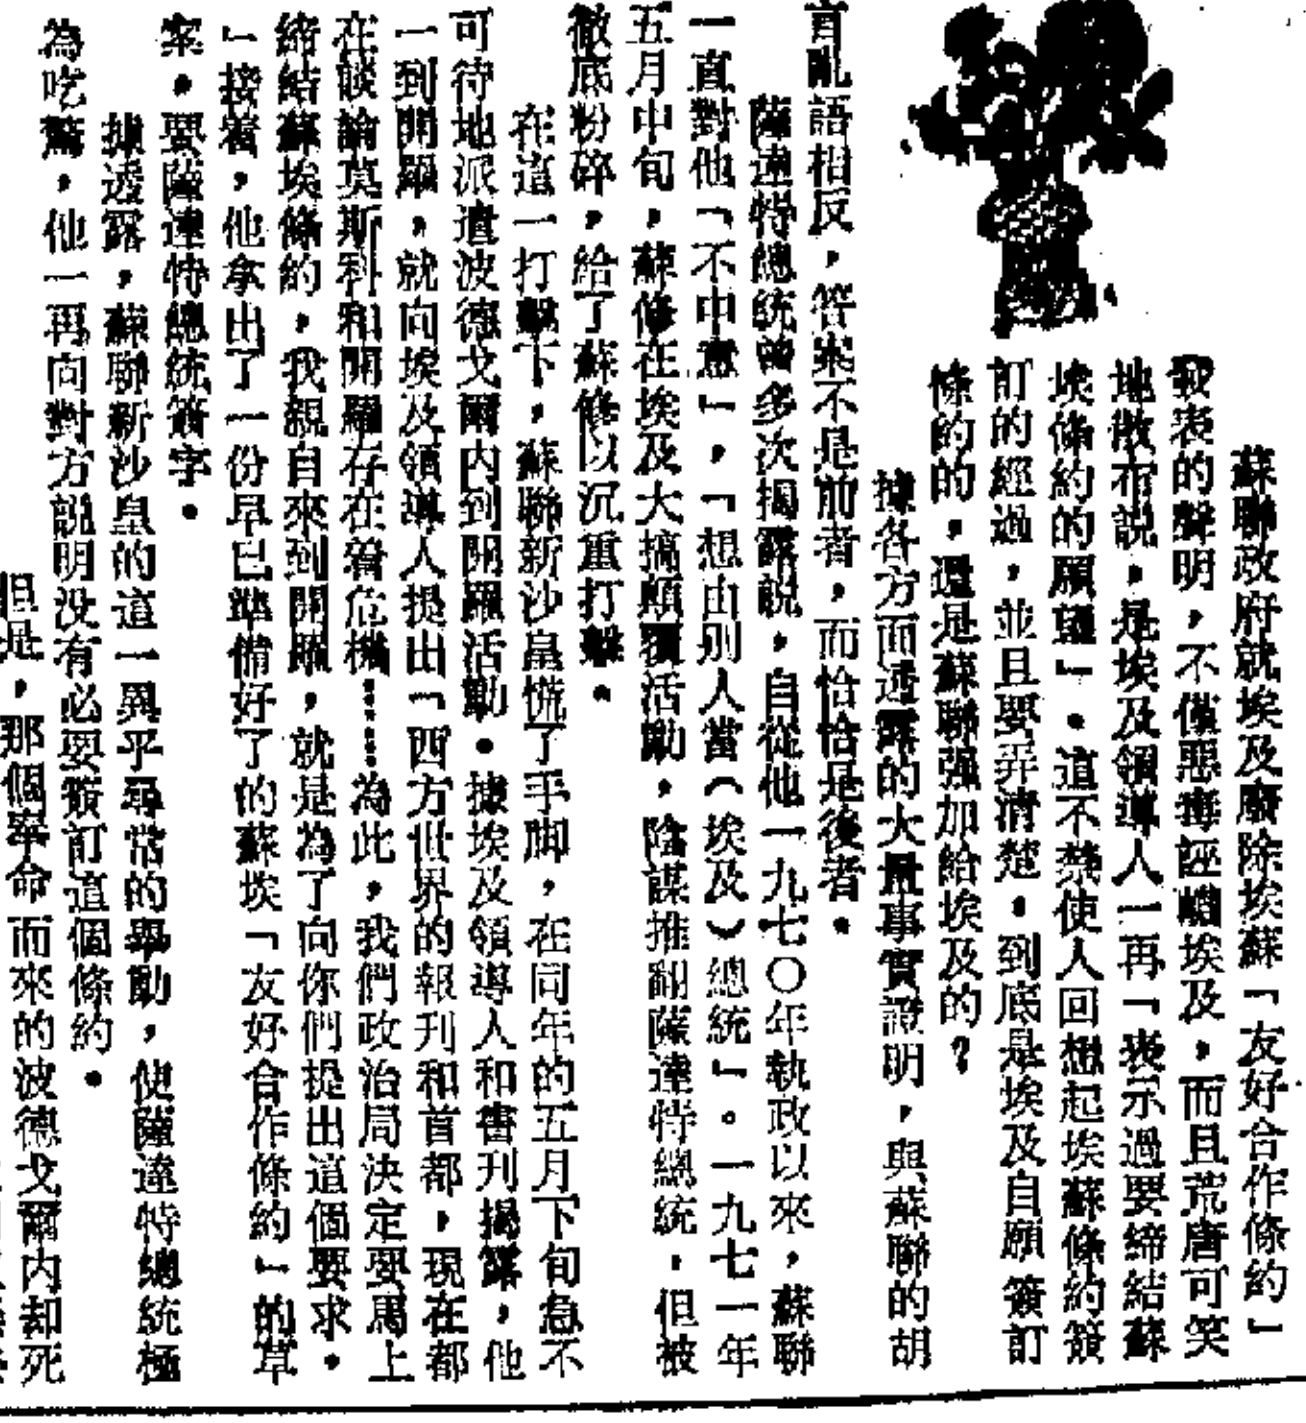 蘇聯政府就埃及廢除埃蘇「友好合作條約」
發表的聲明，不僅惡毒誣衊埃及，而且荒唐可笑
地散布說，是埃及領導人一再「表示過要締結蘇
埃條約的願望」。這不禁使人回想起埃蘇條約簽
訂的經過，並且要弄清楚，到底是埃及自願簽訂
條約的，還是蘇聯强加給埃及的？
據各方面透露的大量事實證明，與蘇聯的胡
言亂語相反，答案不是前者，而恰恰是後者。
薩達特總統曾多次揭露說，自從他一九七〇年執政以來，蘇聯
一直對他「不中意」，「想由别人當（埃及）總統」。一九七一年
五月中旬，蘇修在埃及大搞顛覆活動，陰謀推翻薩達特總統，但被
徹底粉碎，給了蘇修以沉重打擊。
在這一打擊下，蘇聯新沙皇慌了手脚，在同年的五月下旬急不
可待地派遣波德戈爾内到開羅活動。據埃及領導人和書刊揭露，他
一到開羅，就向埃及領導人提出「西方世界的報刊和首都，現在都
在談論莫斯科和開羅存在着危機……為此，我們政治局決定要馬上
締結蘇埃條約，我親自來到開羅，就是為了向你們提出這個要求。
」接着，他拿出了一份早已準備好了的蘇埃「友好合作條約」的草
案，要薩達特總統簽字。
據透露，蘇聯新沙皇的這一異乎尋常的舉動，使薩達特總統極
為吃驚，他一再向對方說明没有必要簽訂這個條約。
但是，那個奉命而來的波德戈爾内却死